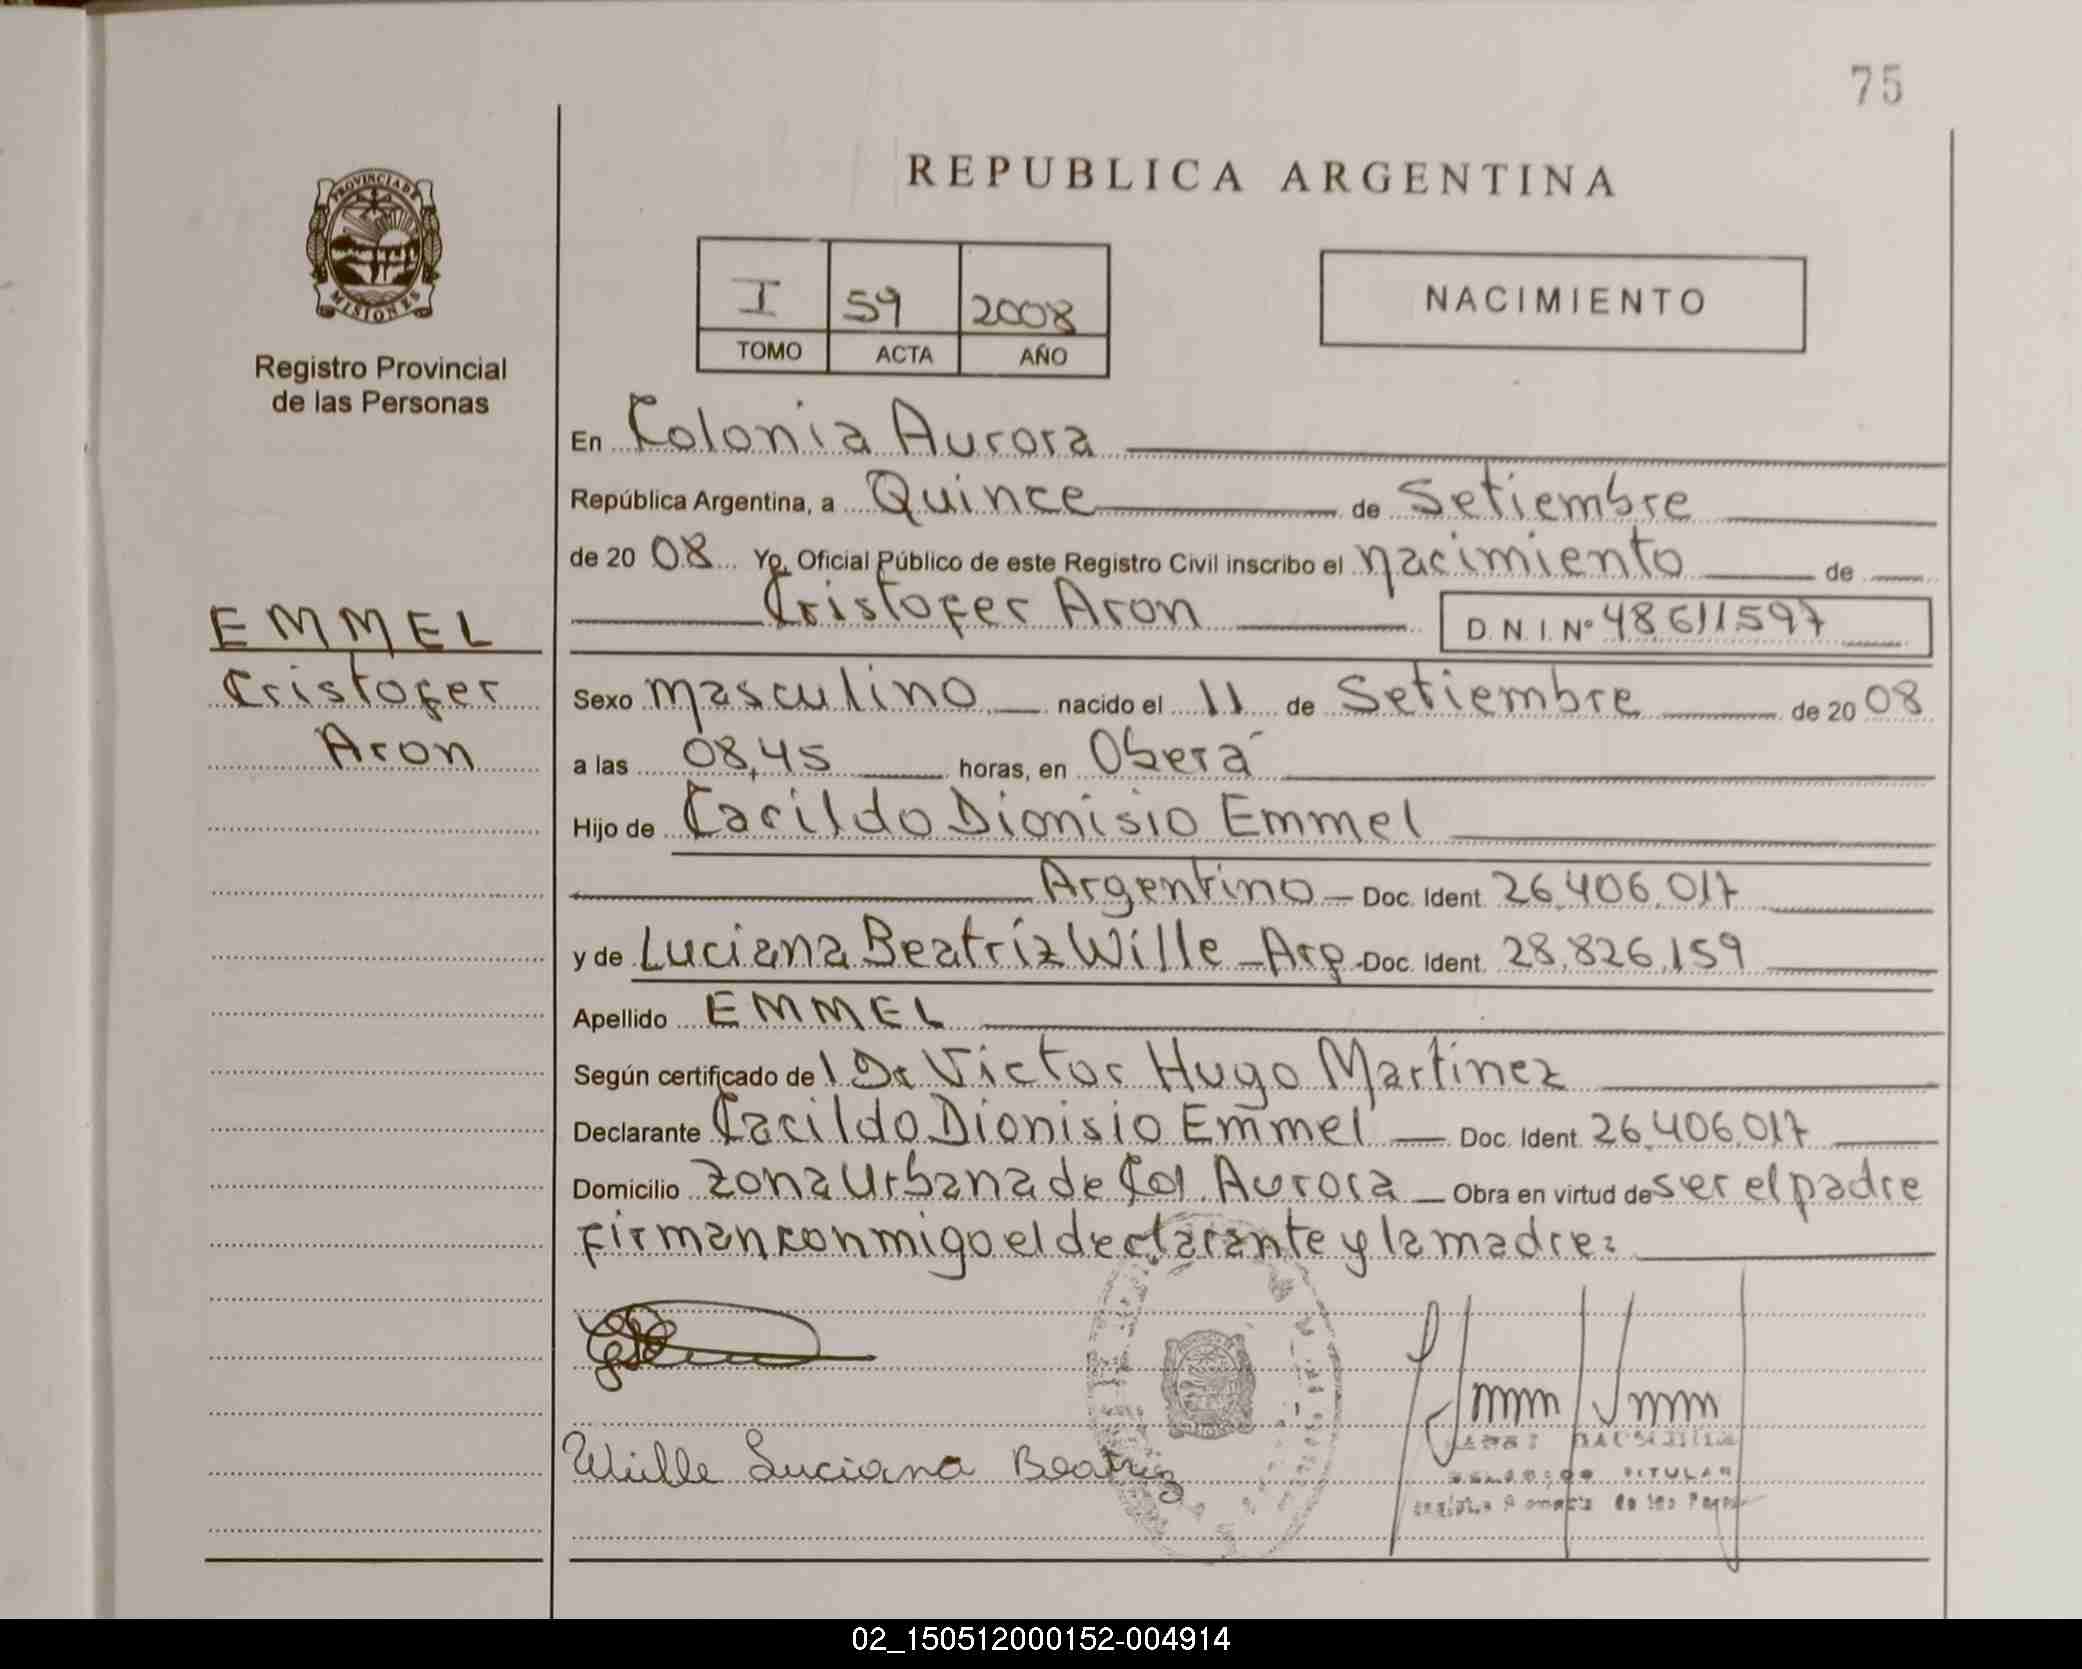 75
REPUBLICA ARGENTINA
PROVINCIA DE
MISIONES
Registro Provincial
de las Personas
I 59 2008
TOMO ACTA AÑO
NACIMIENTO
En Colonia Aurora
República Argentina, a Quince de Setiembre
de 20 08 Yo, Oficial Público de este Registro Civil inscribo el nacimiento de
Cristofer Aron D.N.I. Nº 48.611.597
EMMEL
Cristofer
Aron
Sexo masculino nacido el 11 de Setiembre de 20 08
a las 08,45 horas, en Oberá
Hijo de Cacildo Dionisio Emmel
Argentino Doc. Ident. 26.406.017
y de Luciana Beatríz Wille - Arg. Doc. Ident. 28.826.159
Apellido EMMEL
Según certificado del Dr Victor Hugo Martinez
Declarante Cacildo Dionisio Emmel Doc. Ident. 26.406.017
Domicilio zona Urbana de Col. Aurora Obra en virtud de ser el padre
firman conmigo el declarante y la madre:
Wille Luciana Beatriz
TITULAR
02_150512000152-004914